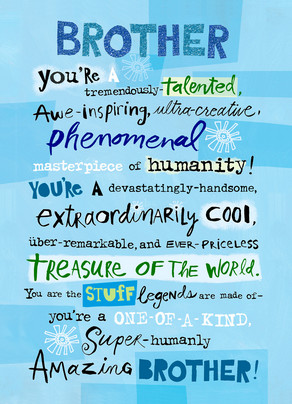 BROTHER
you're A
tremendously-talented,
Awe-inspiring, ultra-creative,
phenomenal
masterpiece of humanity!
YOU'RE A devastatingly-handsome,
extraordinarily cool,
über-remarkable, and EVER-PRICELESS
TREASURE OF THE WORLD.
You are the STUFF legends are made of-
you're a ONE-OF-A-KIND,
Super-humanly
Amazing BROTHER!